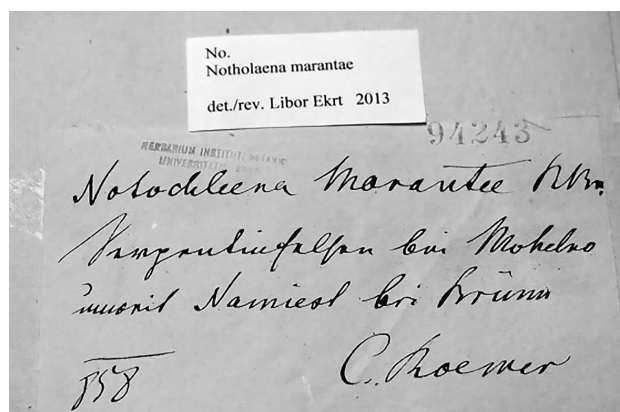 No.
Notholaena marantae
det./rev. Libor Ekrt 2013
94243
HERBARIUM INSTITUTI
UNIVERSITATIS
Notochleena Marantee RBr.
Serpentinfelsen bei Mohelno
unweit Namiest bei Brünn
858
C. Roemer